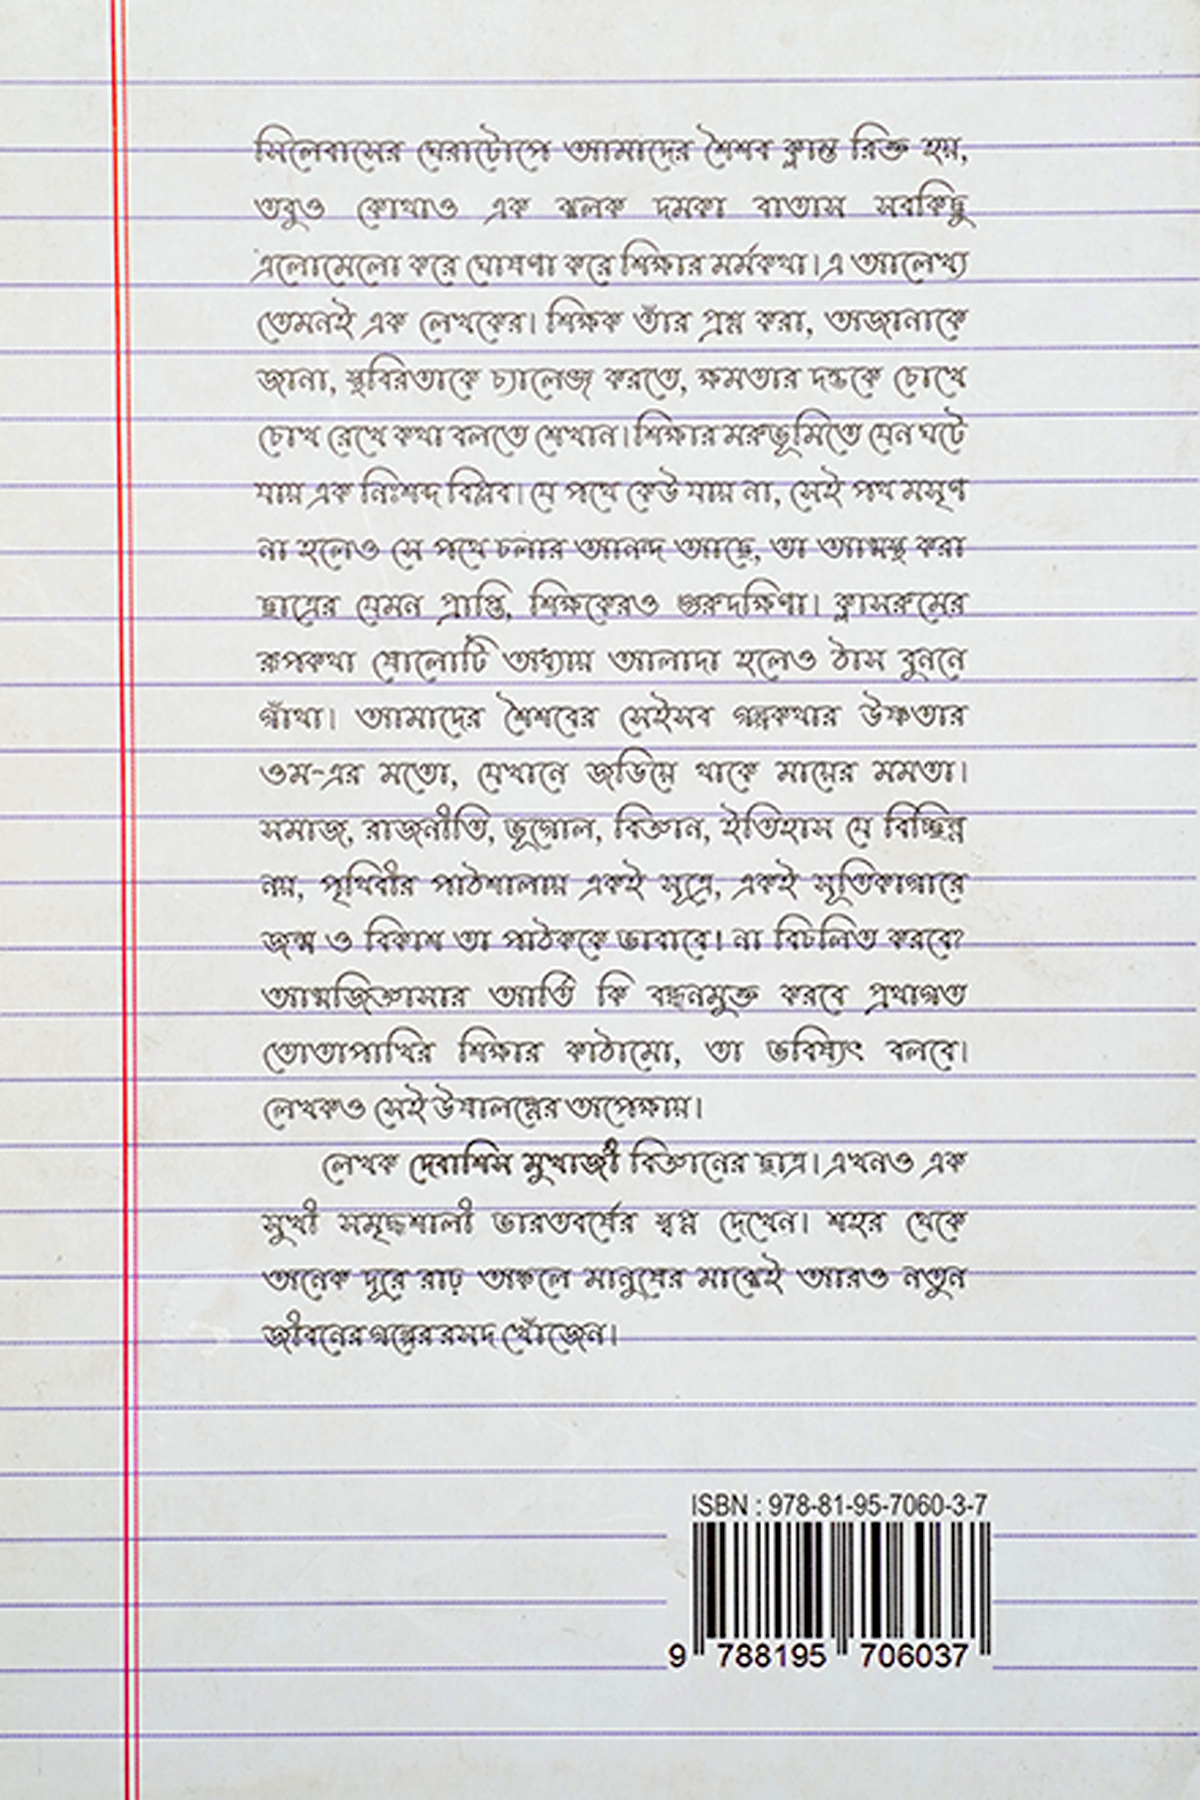 সিলেবাসের ঘেরাটোপে আমাদের শৈশব ক্লান্ত রিক্ত হয়,
তবুও কোথাও এক ঝলক দমকা বাতাস সবকিছু
এলোমেলো করে ঘোষণা করে শিক্ষার মর্মকথা। এ আলেখ্য
তেমনই এক লেখকের। শিক্ষক তাঁর প্রশ্ন করা, অজানাকে
জানা, স্থবিরতাকে চ্যালেঞ্জ করতে, ক্ষমতার দম্ভকে চোখে
চোখ রেখে কথা বলতে শেখান। শিক্ষার মরুভূমিতে যেন ঘটে
যায় এক নিঃশব্দ বিপ্লব। যে পথে কেউ যায় না, সেই পথ মসৃণ
না হলেও সে পথে চলার আনন্দ আছে, তা আত্মস্থ করা
ছাত্রের যেমন প্রাপ্তি, শিক্ষকেরও গুরুদক্ষিণা। ক্লাসরুমের
রূপকথা ষোলোটি অধ্যায় আলাদা হলেও ঠাস বুননে
গাঁথা। আমাদের শৈশবের সেইসব গল্পকথার উষ্ণতার
ওম-এর মতো, যেখানে জড়িয়ে থাকে মায়ের মমতা।
সমাজ, রাজনীতি, ভূগোল, বিজ্ঞান, ইতিহাস যে বিচ্ছিন্ন
নয়, পৃথিবীর পাঠশালায় একই সূত্রে, একই সূতিকাগারে
জন্ম ও বিকাশ তা পাঠককে ভাবাবে। না বিচলিত করবে?
আত্মজিজ্ঞাসার আর্তি কি বন্ধনমুক্ত করবে প্রথাগত
তোতাপাখির শিক্ষার কাঠামো, তা ভবিষ্যৎ বলবে।
লেখকও সেই উষালগ্নের অপেক্ষায়।
লেখক দেবাশিস মুখার্জী বিজ্ঞানের ছাত্র। এখনও এক
সুখী সমৃদ্ধশালী ভারতবর্ষের স্বপ্ন দেখেন। শহর থেকে
অনেক দূরে রাঢ় অঞ্চলে মানুষের মাঝেই আরও নতুন
জীবনের গল্পের রসদ খোঁজেন।
ISBN : 978-81-95-7060-3-7
9 788195 706037